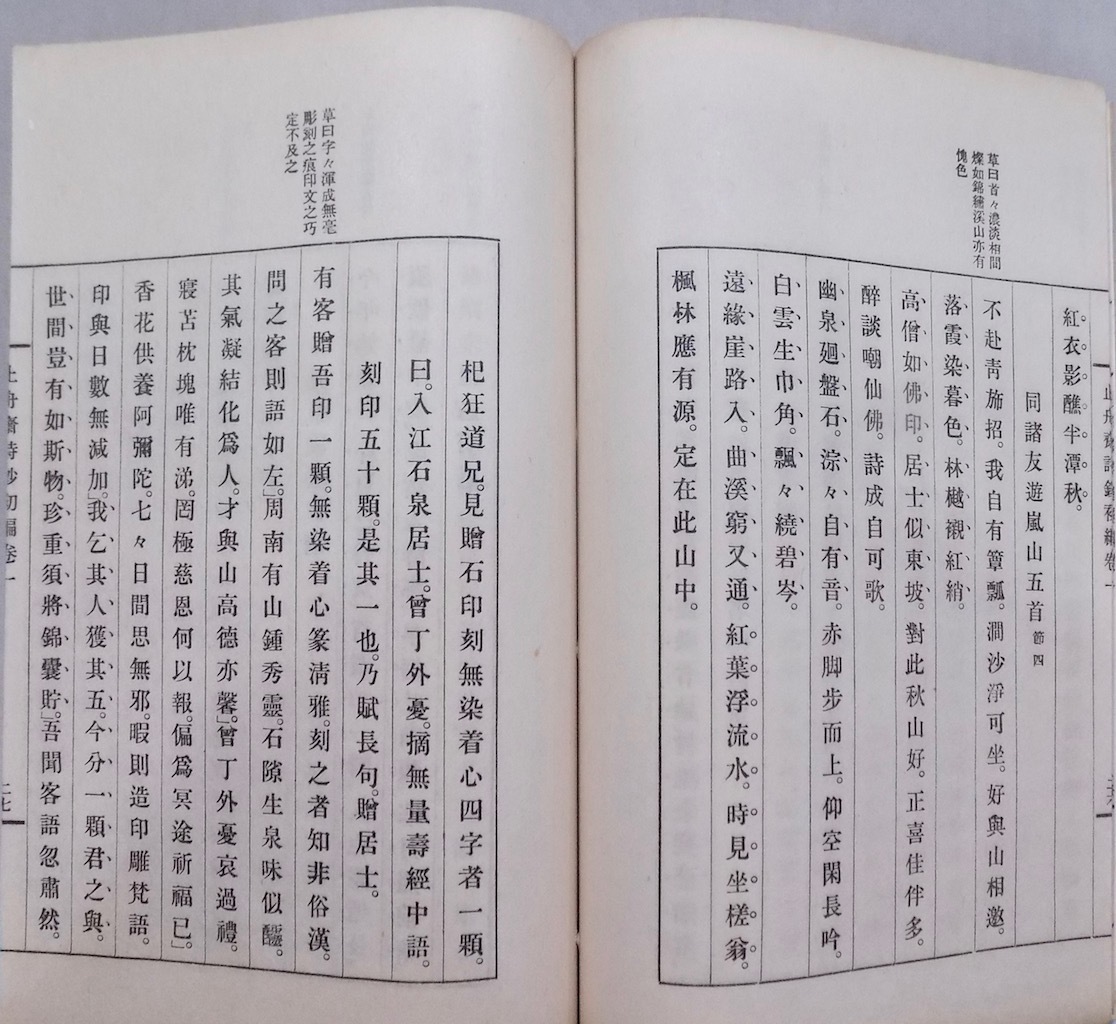 草曰首々濃淡相間
燦如錦繡溪山亦有
愧色
紅衣影醮半潭秋。
同諸友遊嵐山五首節四
不赴靑旆招。我自有簞瓢。澗沙淨可坐。好與山相邀。
落霞染暮色。林樾襯紅綃。
高僧如佛印。居士似東坡。對此秋山好。正喜佳伴多。
醉談嘲仙佛。詩成自可歌。
幽泉廻盤石。淙々自有音。赤脚步而上。仰空閑長吟。
白雲生巾角。飄々繞碧岑。
遠緣崖路入。曲溪窮又通。紅葉浮流水。時見坐槎翁。
楓林應有源。定在此山中。
草曰字々渾成無毫
彫刻之痕印文之巧
定不及之
杞狂道兄。見贈石印刻無染着心四字者一顆。
曰。入江石泉居士。曾丁外憂。摘無量壽經中語。
刻印五十顆。是其一也。乃賦長句。贈居士。
有客贈吾印一顆。無染着心篆淸雅。刻之者知非俗漢。
問之客則語如左。」周南有山鍾秀靈。石隙生泉味似醽。
其氣凝結化爲人。才與山高德亦馨。」曾丁外憂哀過禮。
寢苫枕塊唯有涕。罔極慈恩何以報。偏爲冥途祈福已。」
香花供養阿彌陀。七々日間思無邪。暇則造印雕梵語。
印與日數無減加。」我乞其人獲其五。今分一顆君之與。
世間豈有如斯物。珍重須將錦囊貯。」吾聞客語忽肅然。
止舟齋詩鈔初編卷一
二七